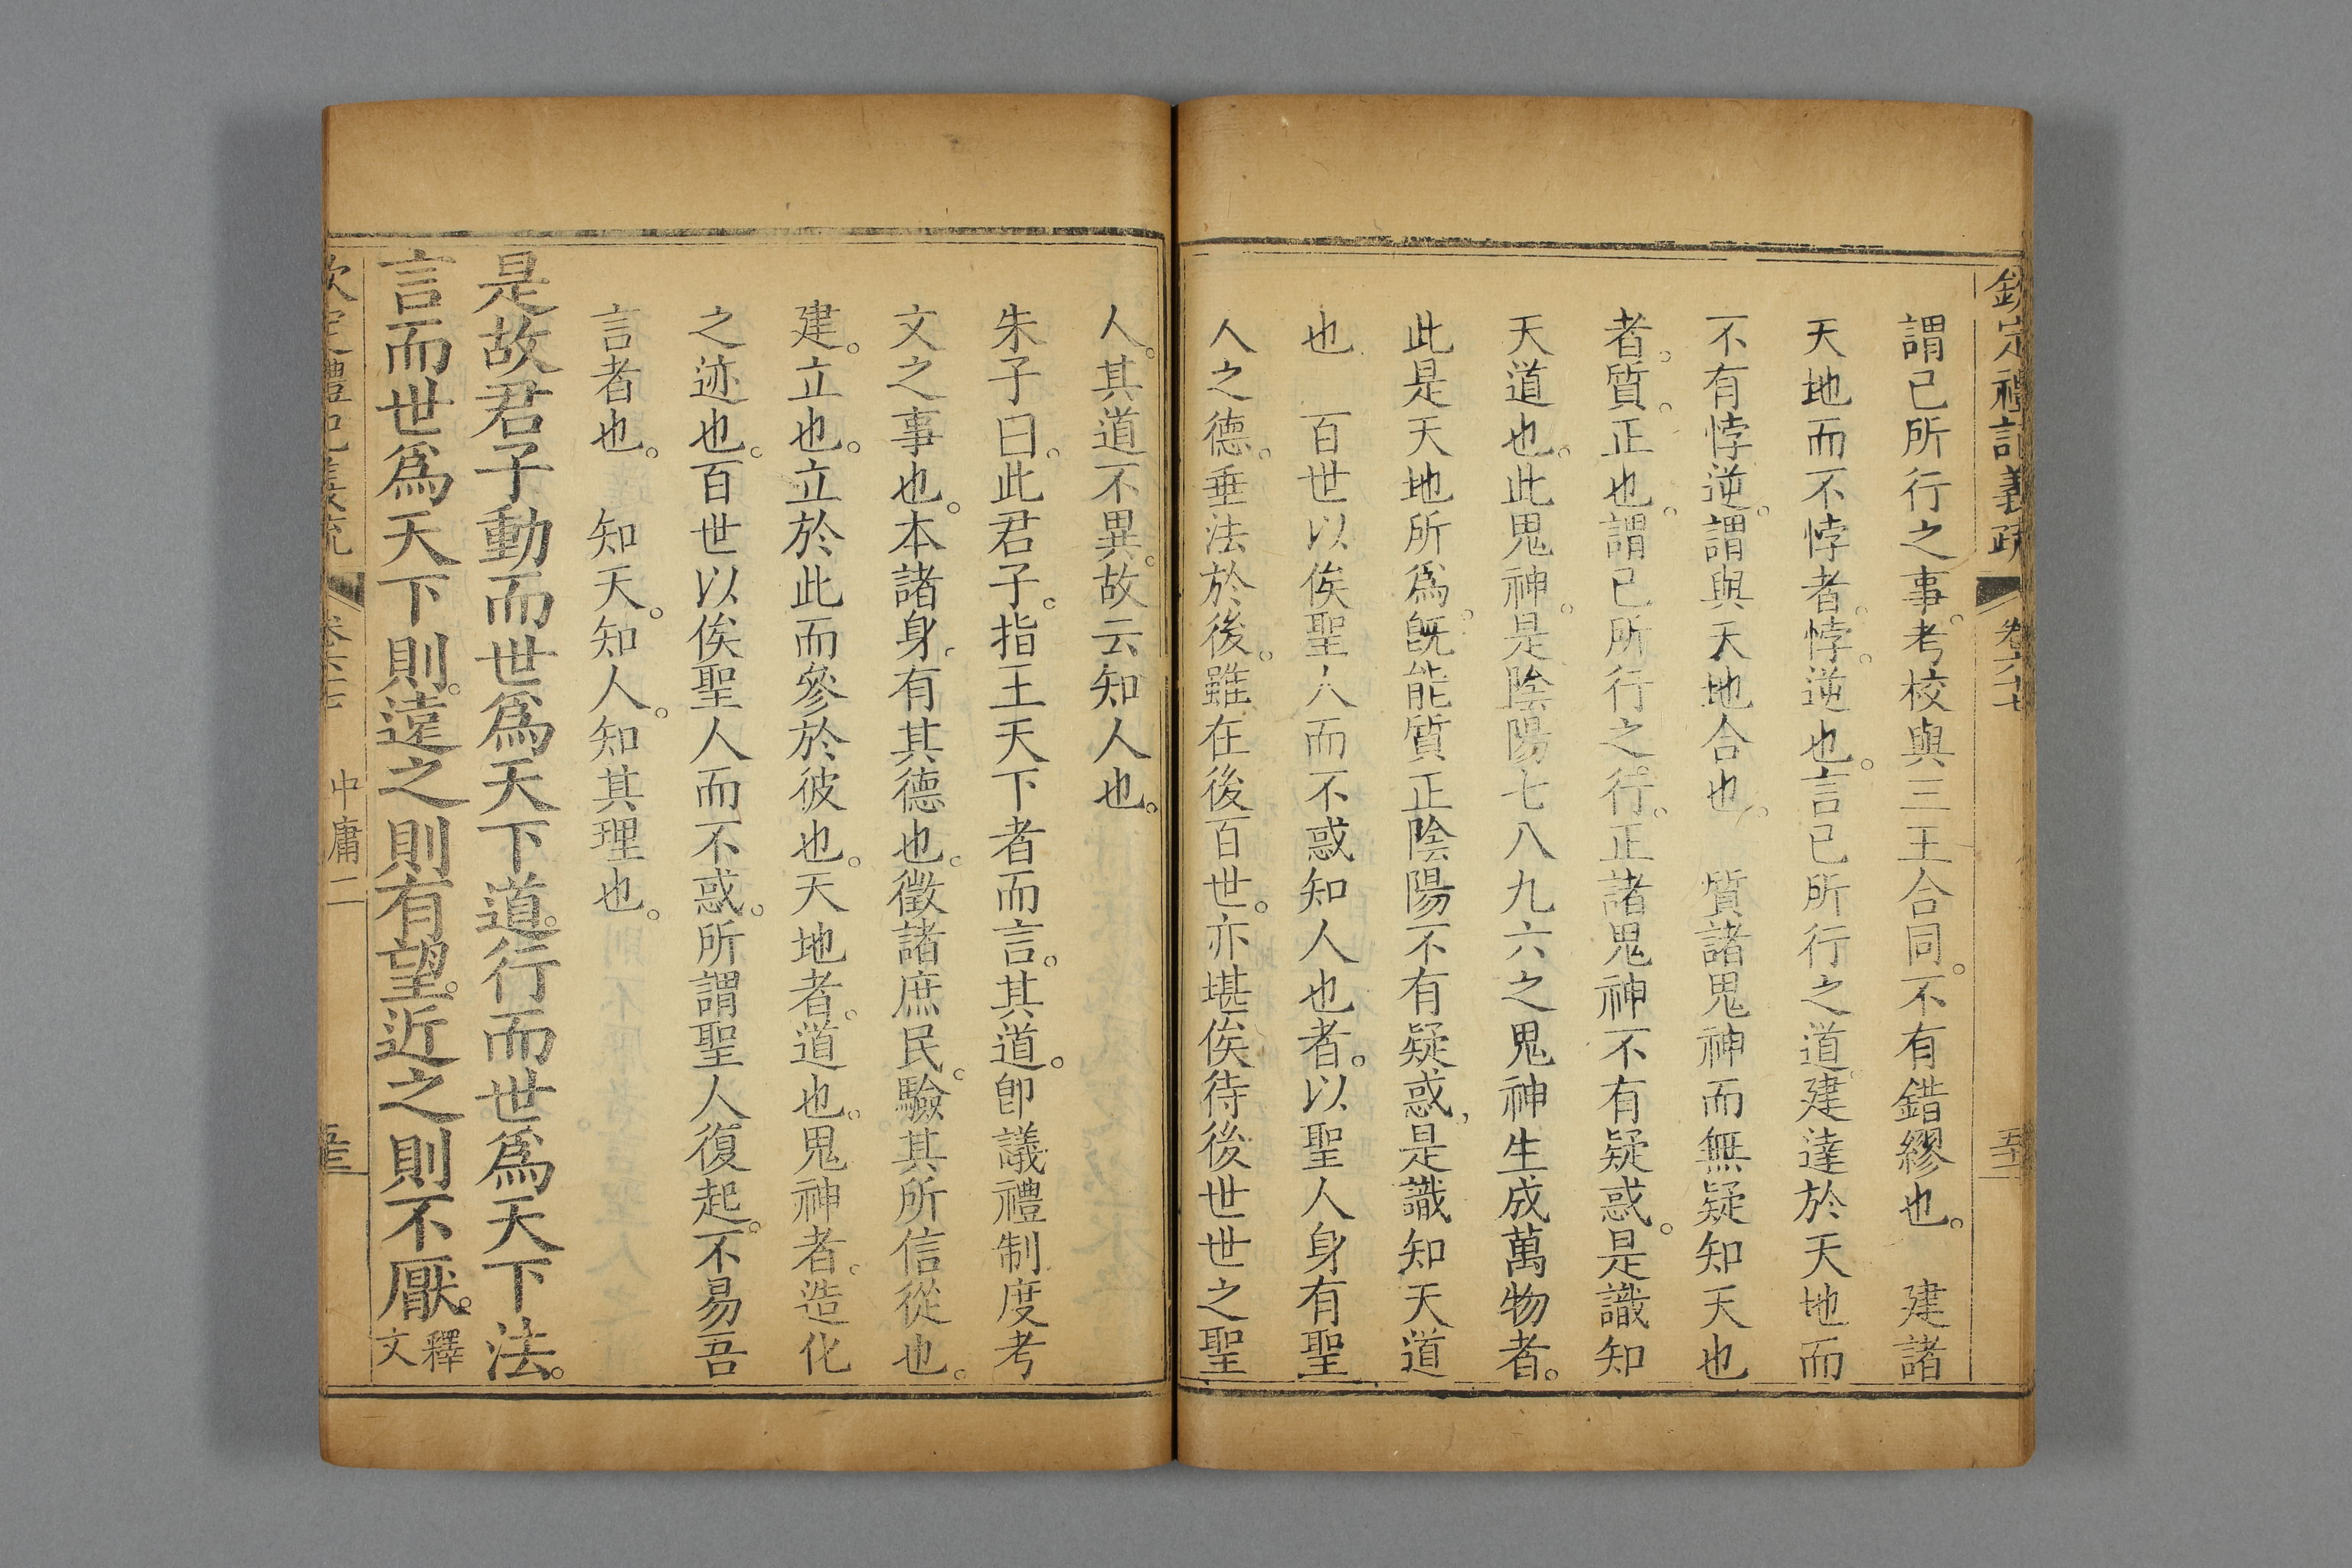 欽定禮記義疏 卷六十七
謂已所行之事。考校與三王合同。不有錯繆也。 建諸
天地而不悖者。悖。逆也。言已所行之道。建達於天地而
不有悖逆。謂與天地合也。 質諸鬼神而無疑知天也
者。質。正也。謂已所行之行。正諸鬼神不有疑惑。是識知
天道也。此鬼神。是陰陽七八九六之鬼神生成萬物者。
此是天地所爲。旣能質正陰陽不有疑惑。是識知天道
也 百世以俟聖人而不惑知人也者。以聖人身有聖
人之德。垂法於後。雖在後百世。亦堪俟待後世世之聖
人。其道不異。故云知人也。
朱子曰。此君子。指王天下者而言。其道。卽議禮制度考
文之事也。本諸身。有其德也。徵諸庶民。驗其所信從也。
建。立也。立於此而參於彼也。天地者。道也。鬼神者。造化
之迹也。百世以俟聖人而不惑。所謂聖人復起。不易吾
言者也。 知天。知人。知其理也。
是故君子動而世爲天下道。行而世爲天下法。
言而世爲天下則。遠之則有望。近之則不厭。釋文
欽定禮記義疏 卷六十七 中庸二